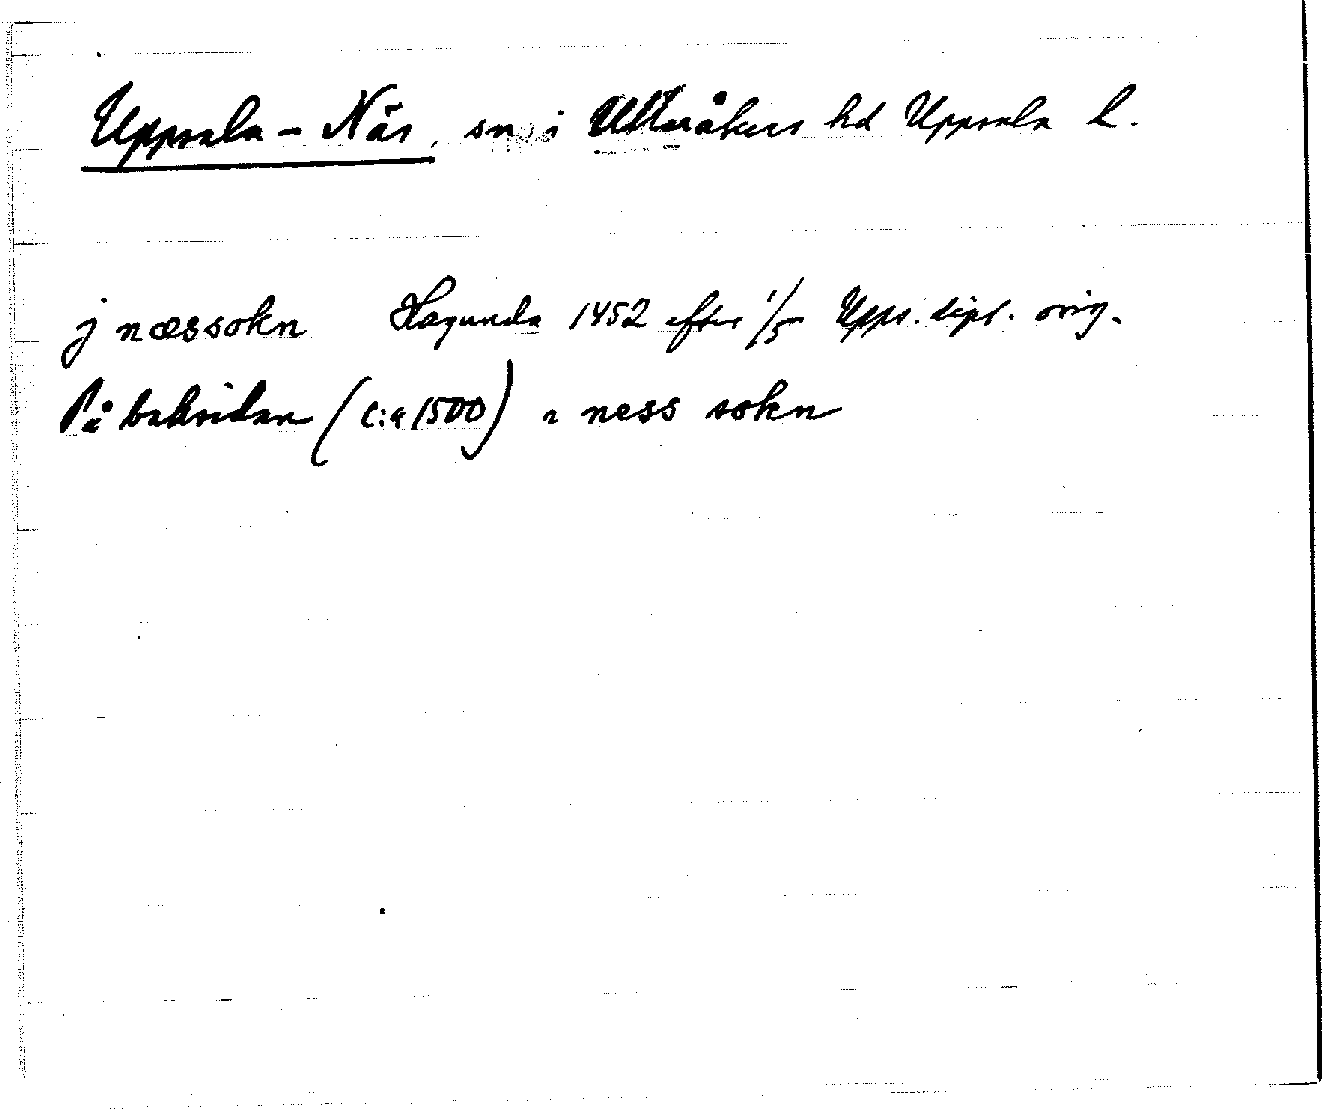 Uppsala-Näs, sn i Ulleråkers hd Uppsala l.
j næssokn Hagunda 1452 efter 1/5 Upps. dipl. orig.
På baksidan (c:a 1500) i ness sokn